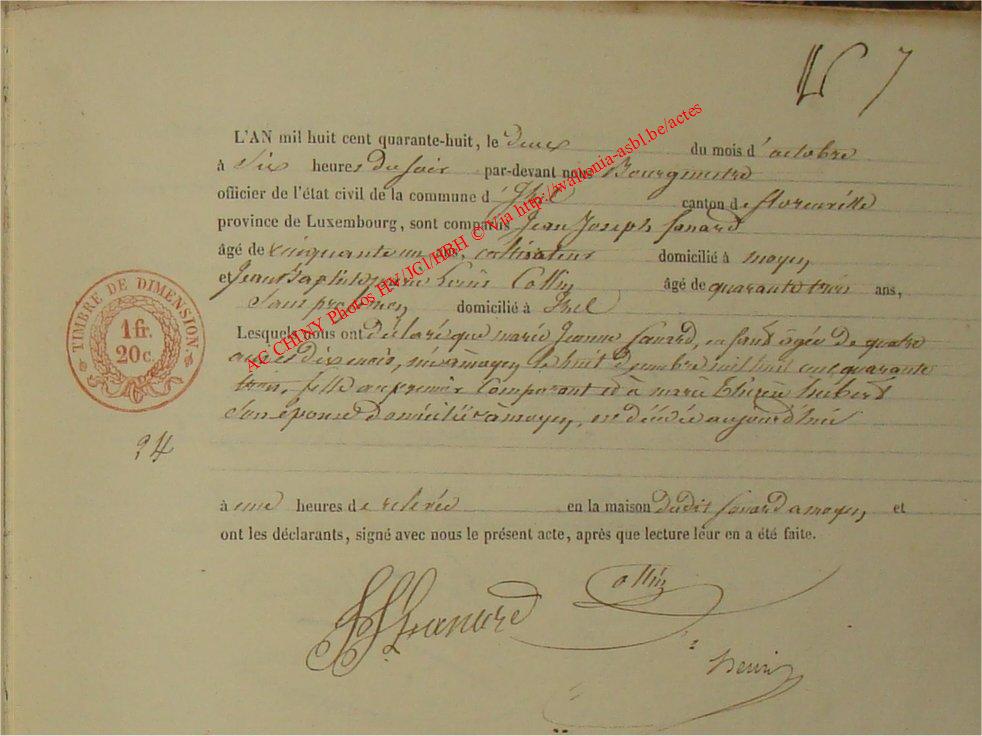 7
L'AN mil huit cent quarante-huit, le deux du mois d'octobre
à Six heures du soir par-devant nous Bourgmestre
officier de l'état civil de la commune d'Izel canton de florenville
province de Luxembourg, sont comparus Jean Joseph Lanard
âgé de cinquante un ans, cultivateur domicilié à moyen
et Jean Baptiste Louis Collin âgé de quarante trois ans,
Sans profession domicilié à Izel
Lesquels nous ont déclaré que marie Jeanne Lanard, enfant âgée de quatre
ans et dix mois, née à moyen le huit décembre mil huit cent quarante
trois, fille au premier Comparant et à marie Hubert
Son épouse domiciliée à moyen, est décédée aujourd'hui
à une heures de relevée en la maison dudit Lanard a moyen, et
ont les déclarants, signé avec nous le présent acte, après que lecture leur en a été faite.
JJ Lanard
Collin
henri
TIMBRE DE DIMENSION
1 fr.
20 c.
24
AC CHINY Photos HV/JCI/HBH © Nja http://wallonia-asbl.be/actes